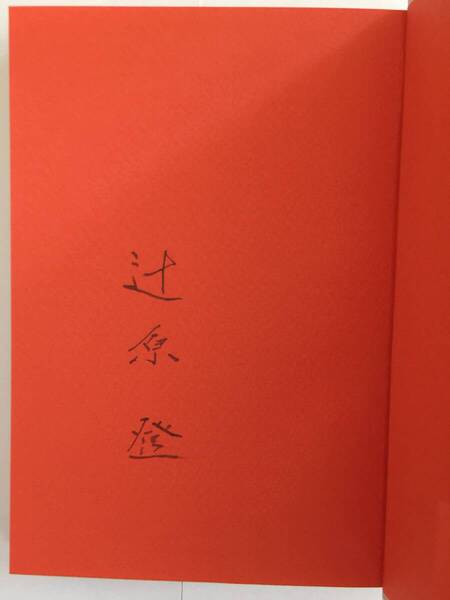 辻原登